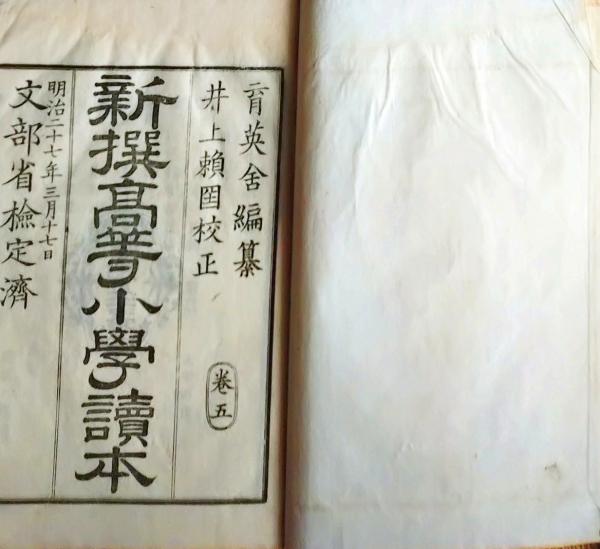 育英舍編纂
井上賴囶校正
新撰高等小學讀本
卷五
明治二十七年三月十七日
文部省檢定濟